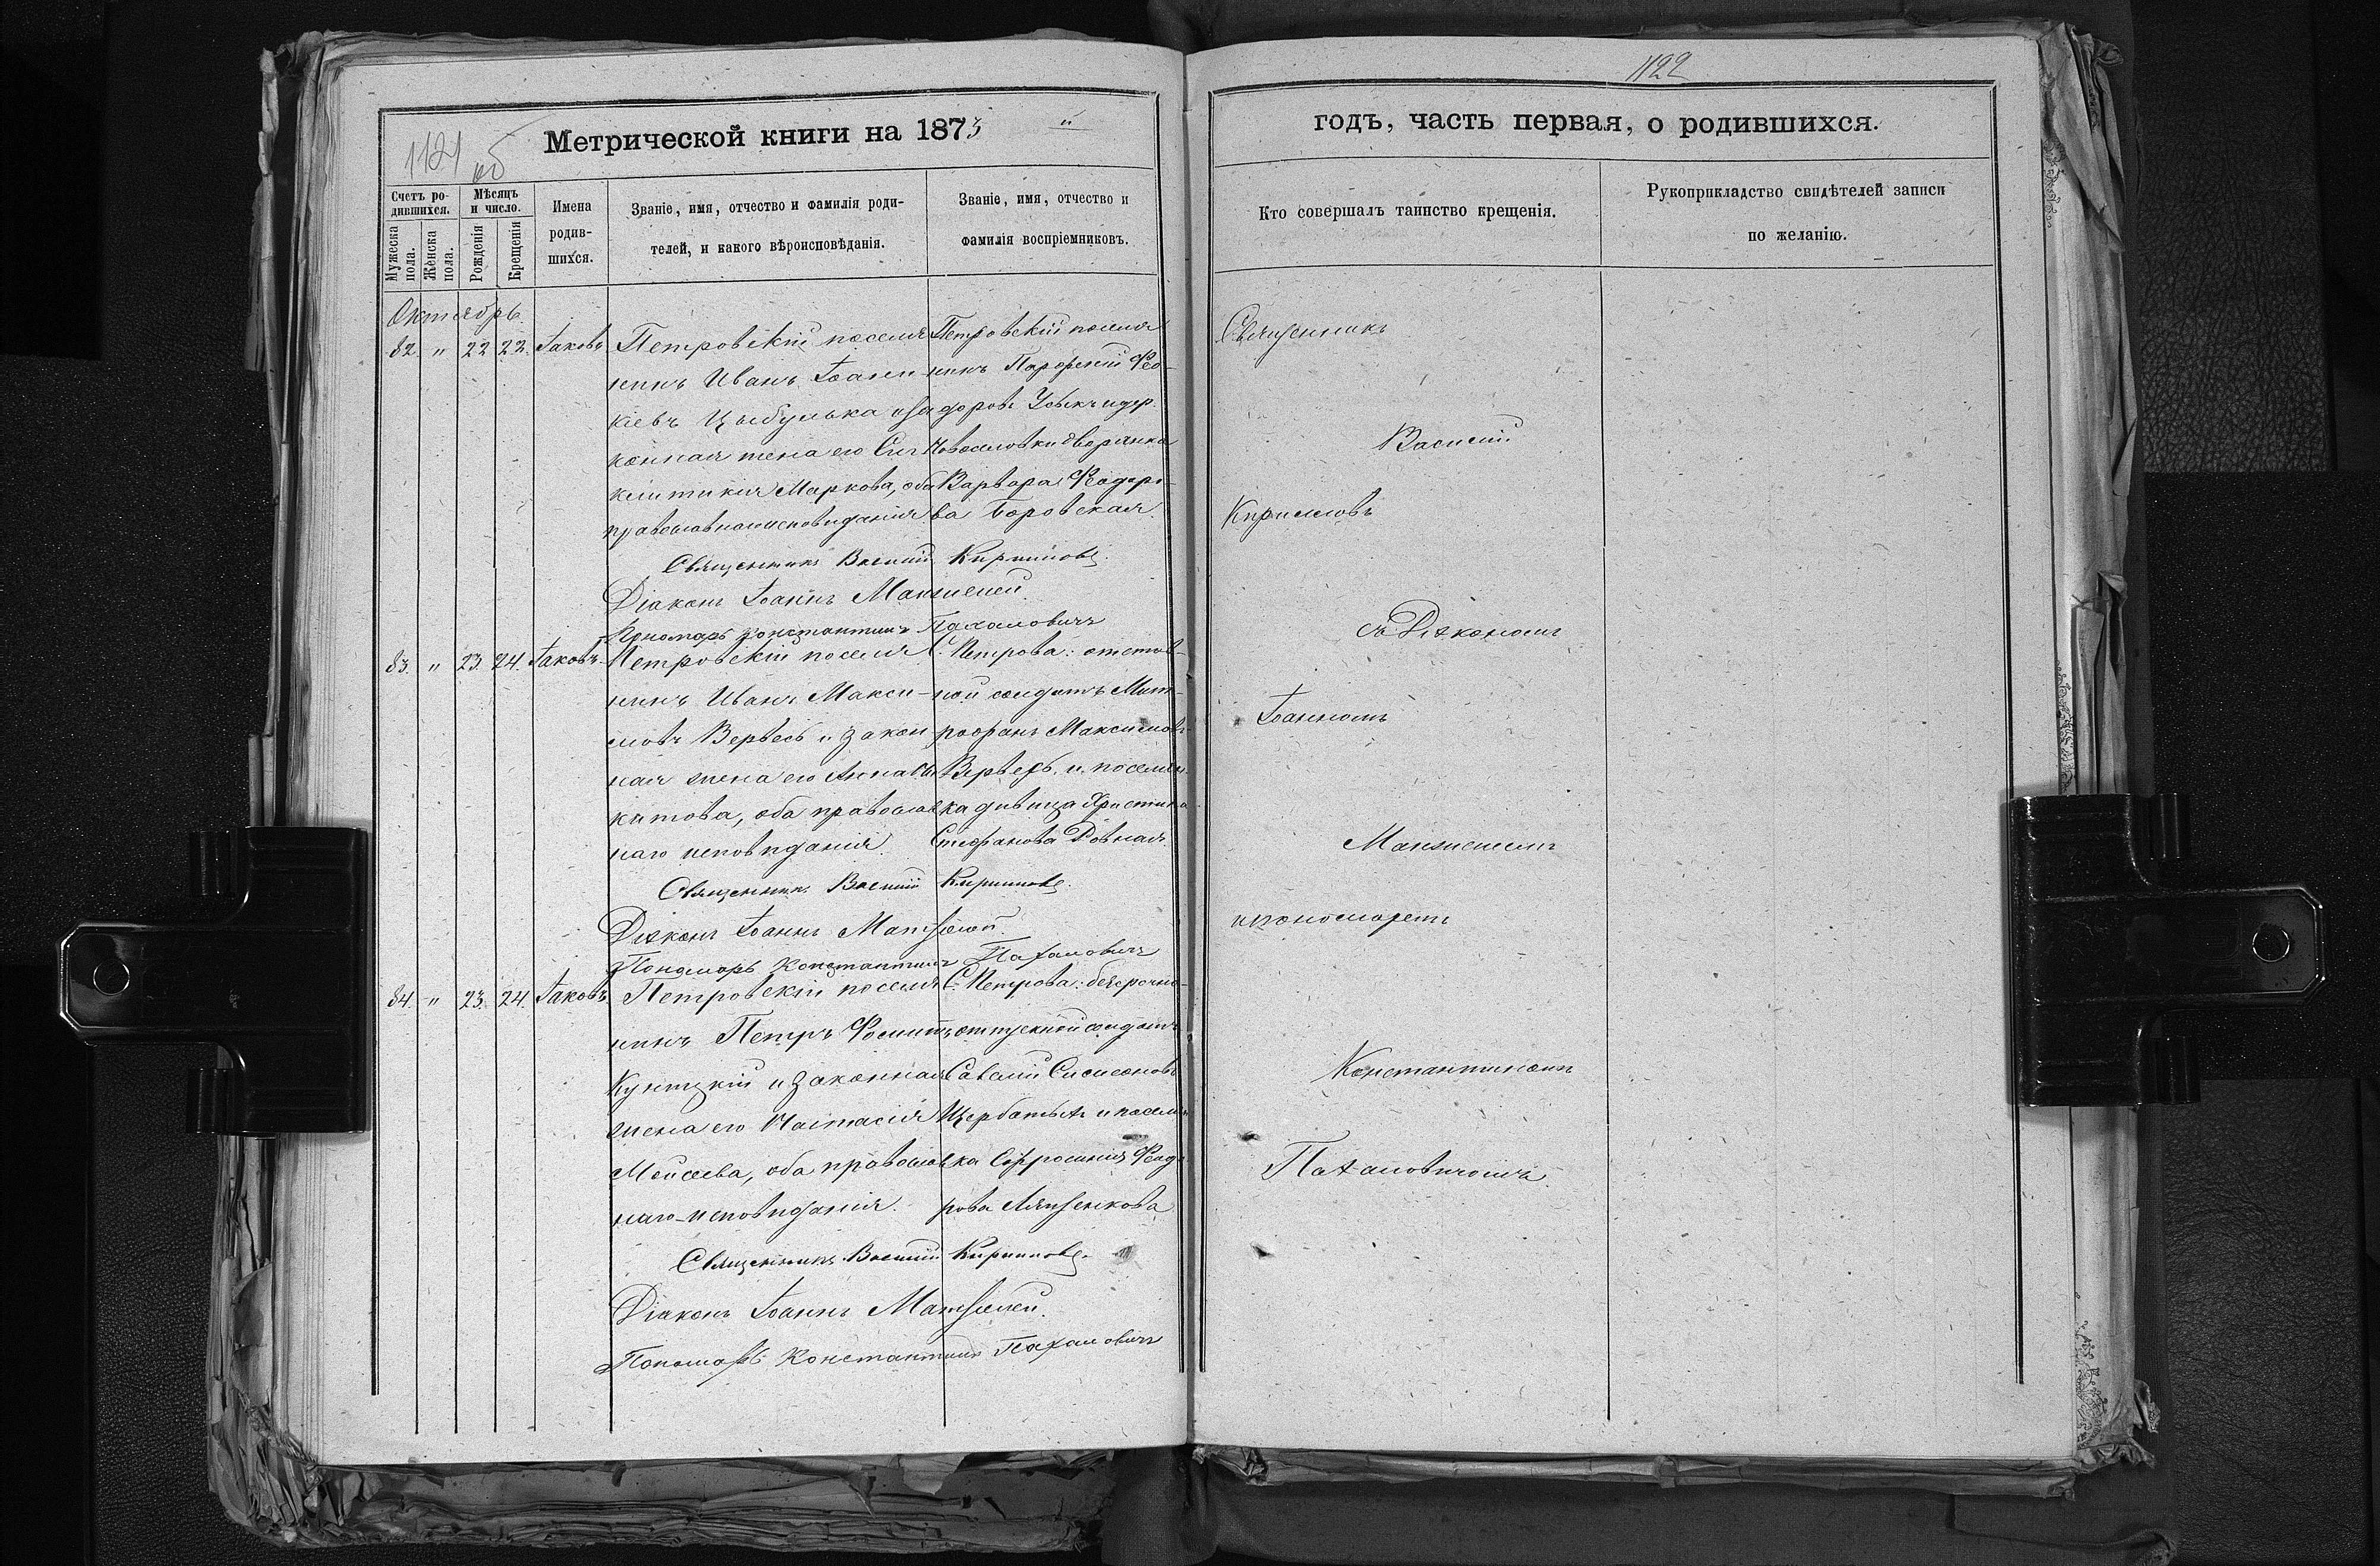 1121 об
Метрической книги на 1873 й
Счетъ ро-
дившихся.
Мужеска пола.
Женска пола.
Мѣсяцъ
и число.
Рожденія
Крещенія
Имена
родив-
шихся.
Званіе, имя, отчество и фамилія роди-
телей, и какого вѣроисповѣданія.
Званіе, имя, отчество и
фамилія воспріемниковъ.
Октябрь
82. " 22 22. Іаковъ
Петровскій поселя
нинъ Иванъ Іоанн
кіевъ Цыбулька и за
конная жена его Син
клитикія Маркова, оба
православнаго исповѣданія
Петровскій поселя
нинъ Парфеній Фео-
доровъ Усыкъ и дер.
Новоселовки дворянка
Варвара Феодоро-
ва Боровская.
Священникъ Василій Кирилловъ.
Діаконъ Іоаннъ Манжелей.
Пономарь Константинъ Пахаловичъ
83. " 23. 24. Іаковъ
Петровскій поселя
нинъ Иванъ Макси-
мовъ Вербесъ и закон
ная жена его Анна Ни
китова, оба православ
наго исповѣданія.
С. Петрова: отстав-
ной солдатъ Мит-
рофанъ Максимовъ
Вербесъ и поселян
ка дѣвица Христина
Стефанова Ровная.
Священникъ Василій Кирилловъ.
Діаконъ Іоаннъ Манжелей.
Пономарь Константинъ Пахаловичъ
84. " 23. 24. Іаковъ
Петровскій поселя
нинъ Петръ
и законная
жена его Настасія
Моисеева, оба православ
наго исповѣданія.
С. Петрова: безсрочно-
отпускной солдатъ
Савелій Симеоновъ
Щербатый и поселян
ка Ефросинія Феодо
рова
Священникъ Василій Кирилловъ.
Діаконъ Іоаннъ Манжелей.
Пономарь Константинъ Пахаловичъ
1122
годъ, часть первая, о родившихся.
Кто совершалъ таинство крещенія.
Рукоприкладство свидѣтелей записи
по желанію.
Священникъ
Василій
Кирилловъ
съ Діакономъ
Іоанномъ
Манжелеемъ
и пономаремъ
Константиномъ
Пахаловичомъ.